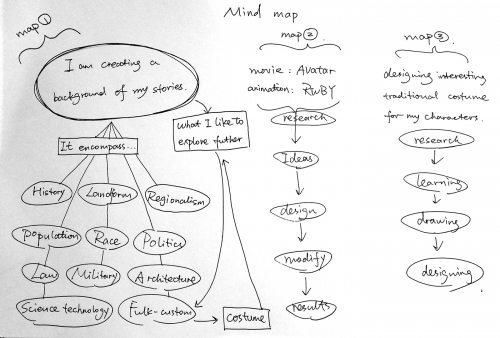 Mind map
map ①
I am creating a
background of my stories.
It encompass...
History
Landform
Regionalism
Population
Race
Politics
Law
Military
Architecture
Science technology
Fulk-custom
costume
what I like to
explore futher
map ②
movie : Avatar
animation : RWBY
research
Ideas
design
modify
results
map ③
designing interesting
traditional costume
for my characters.
research
learning
drawing
designing